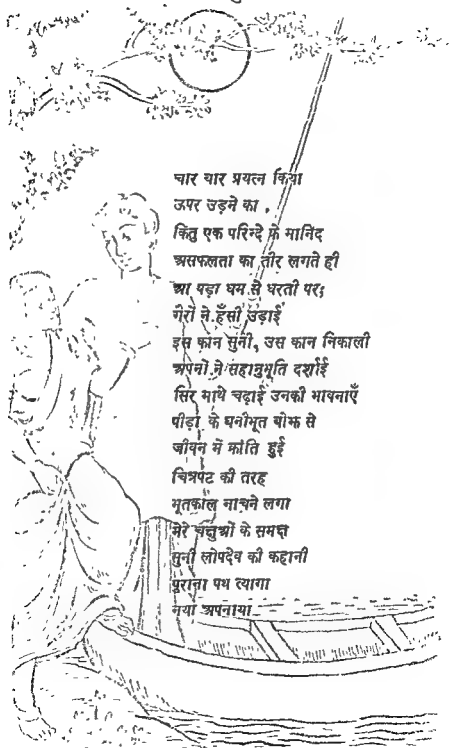 चार बार प्रयत्न किया
ऊपर उड़ने का ,
किंतु एक परिन्दे के मानिंद
असफलता का तीर लगते ही
आ पड़ा धम से धरती पर;
गैरों ने हँसी उड़ाई
इस कान सुनी, उस कान निकाली
अपनों ने सहानुभूति दर्शाई
सिर माथे चढ़ाई उनकी भावनाएँ
पीड़ा के घनीभूत बोझ से
जीवन में क्रांति हुई
चित्रपट की तरह
भूतकाल नाचने लगा
मेरे चक्षुओं के समक्ष
सुनी लोपदेव की कहानी
पुराना पथ त्यागा
नया अपनाया